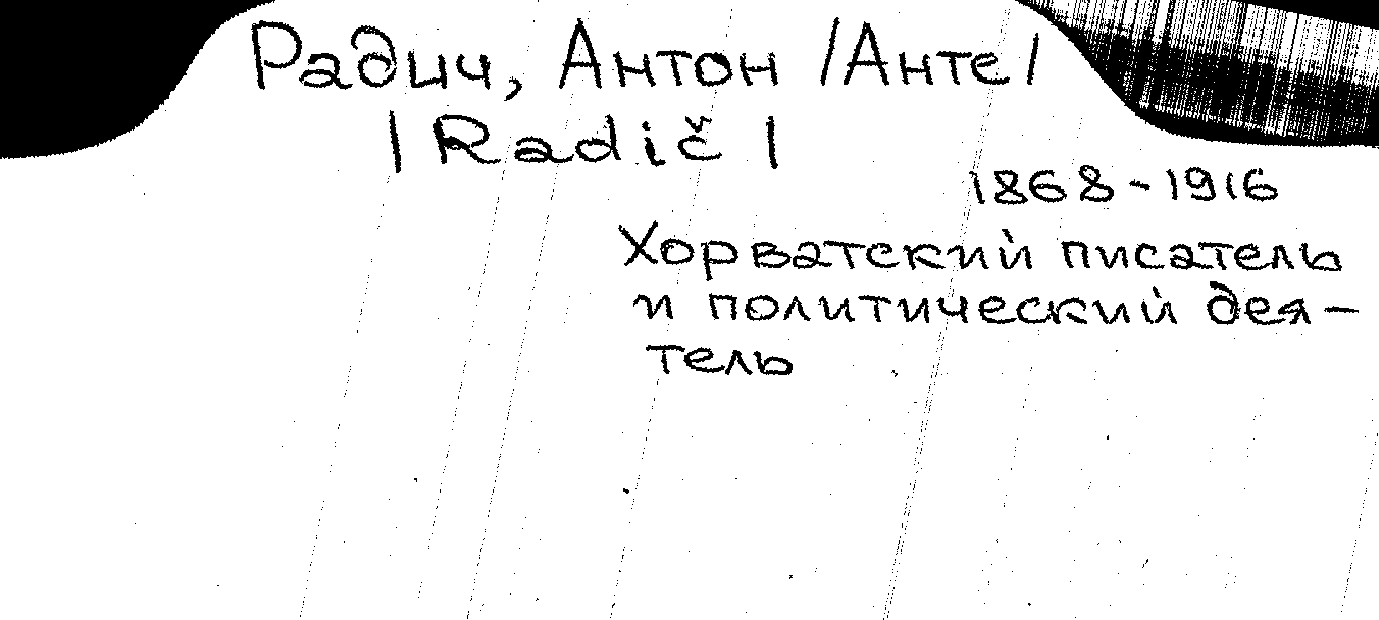 Радич, Антон /Анте/
/Radič/
1868-1916
Хорватский писатель
и политический дея-
тель